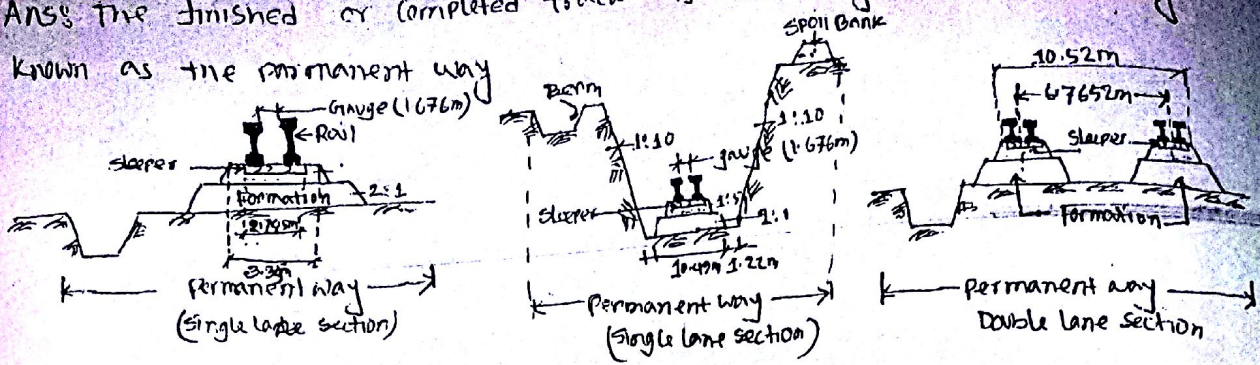 Ans: The finished or completed
known as the parmanent way
Gauge (1.676m)
Rail
Sleeper
Formation
2:1
3.3m
permanent way
(single lane section)
Spoil Bank
Berm
1:10
1:10
gauge (1.676m)
Sleeper
1:5
2:1
1.22m
permanent way
(single lane section)
10.52m
67652m
Sleeper
Formation
permanent way
Double lane section